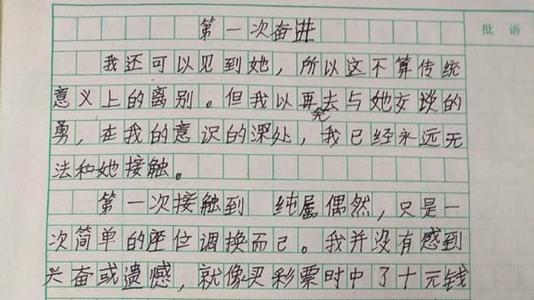 第一次奋进
批语
我还可以见到她，所以这不算传统
意义上的离别。但我以再无去与她交谈的
勇，在我的意识的深处，我已经永远无
法和她接触。
第一次接触到 纯属偶然，只是一
次简单的座位调换而己。我并没有感到
兴奋或遗憾，就像买彩票时中了十元钱